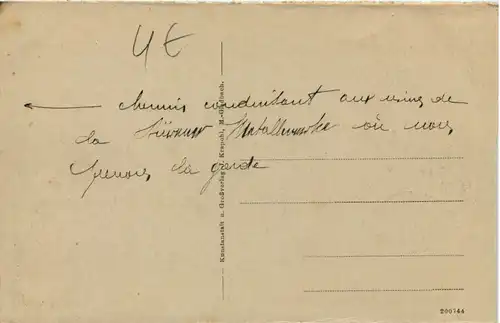 4 E
← chemin conduisant aux usines de
la Metallwerke où nous
prenons la garde
Kunstanstalt u. Großverlag J. Krapohl, M.-Gladbach.
200744